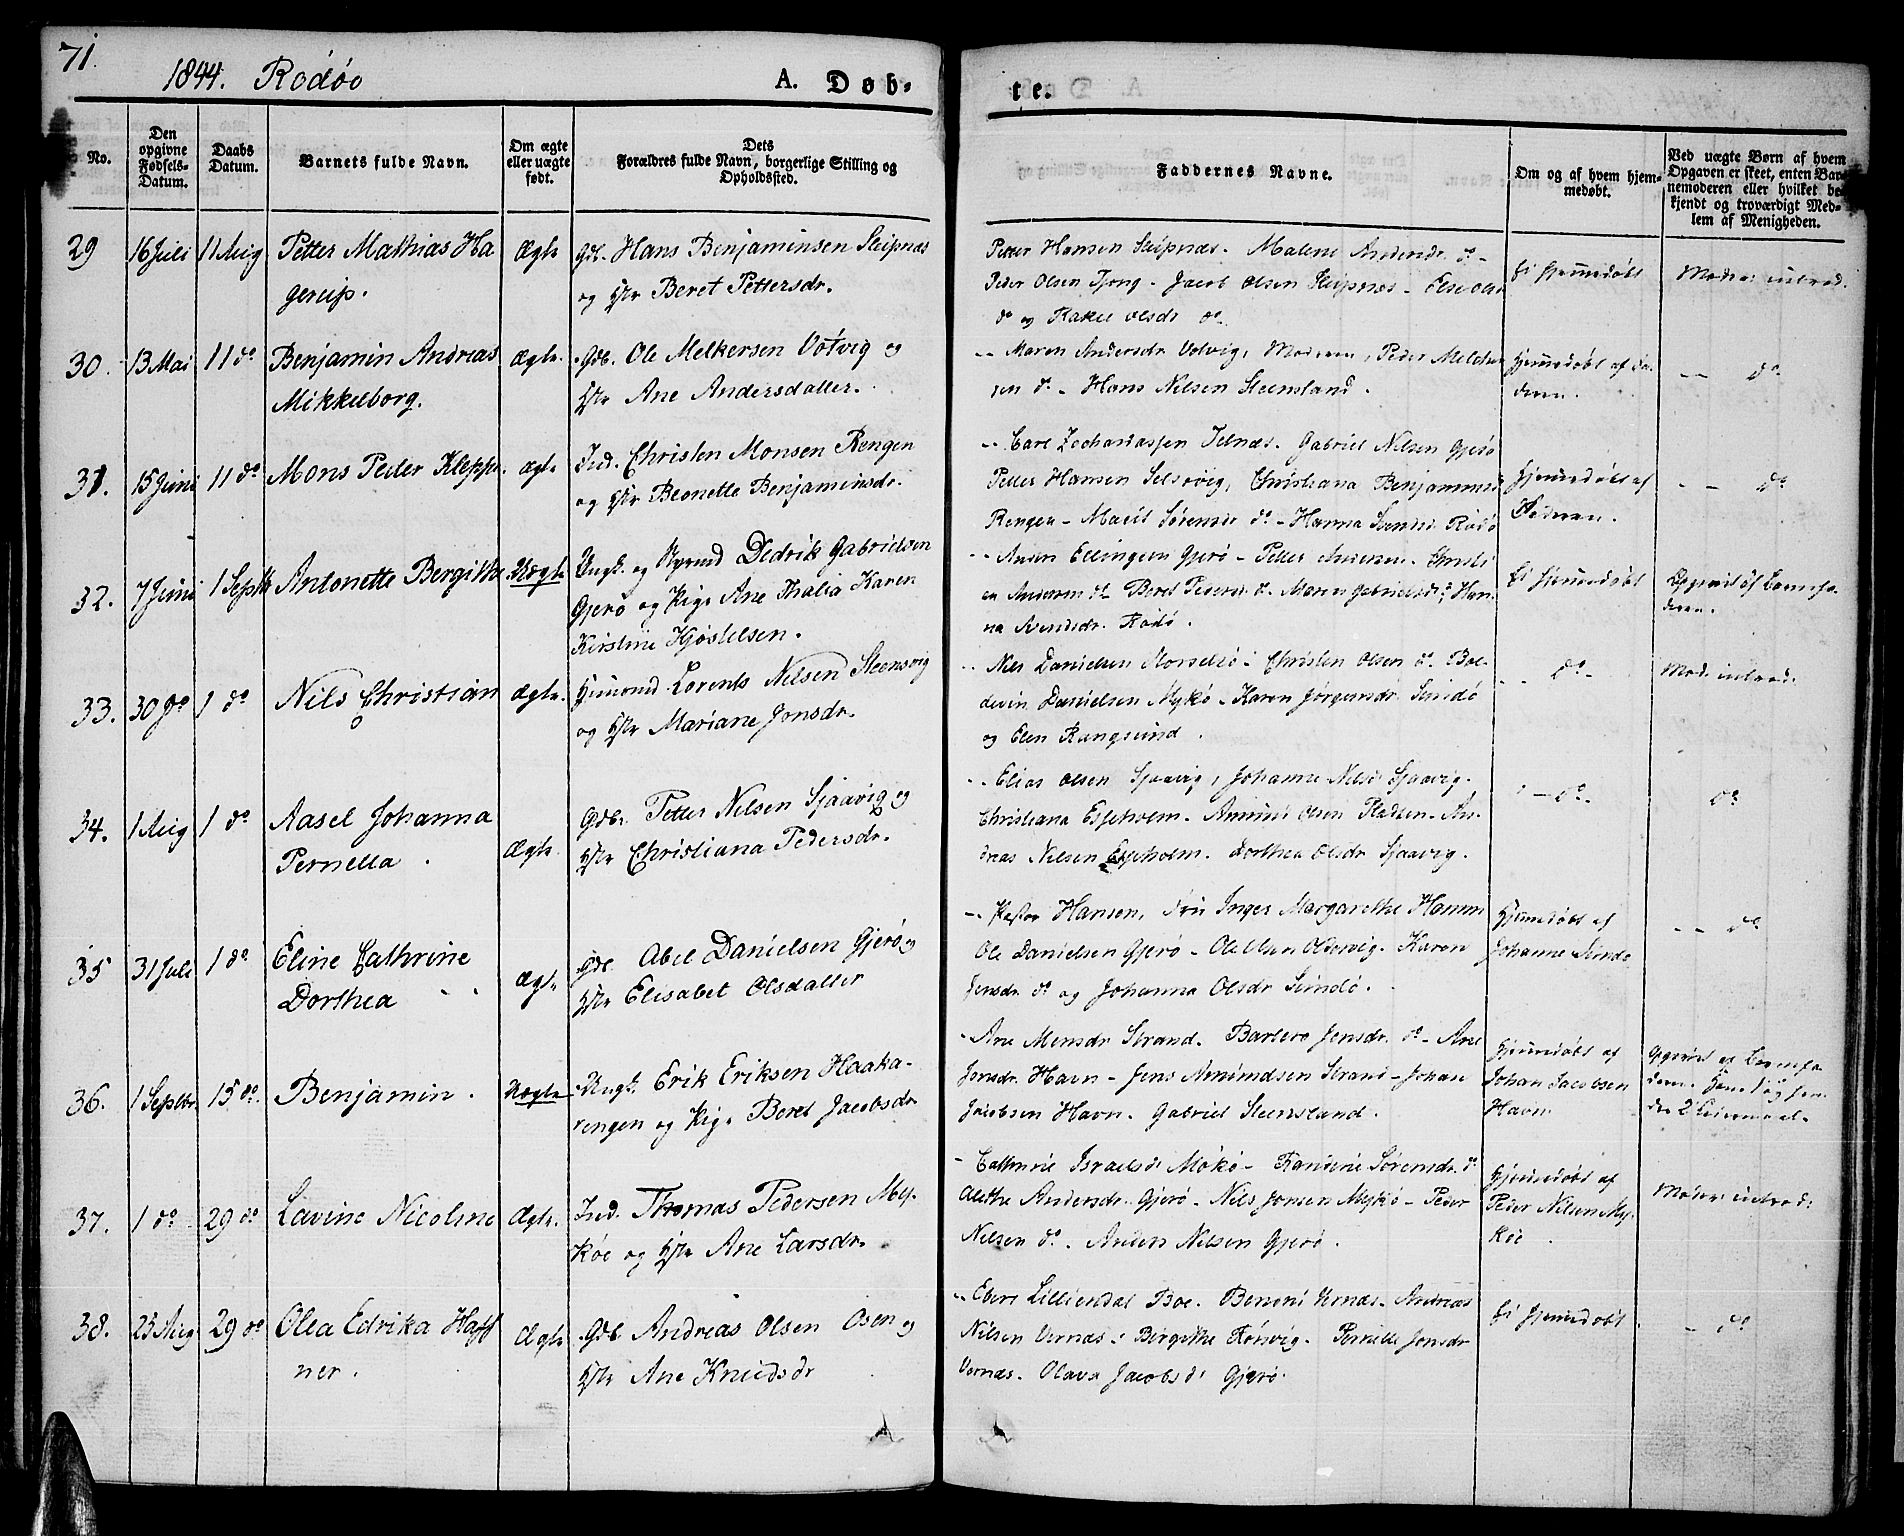 71.
1844. Rodøe
A. Døb-
te.
No.
Den opgivne Fødsels-Datum.
Daabs Datum.
Barnets fulde Navn.
Om ægte eller uægte født.
Dets Forældres fulde Navn, borgerlige Stilling og Opholdssted.
Faddernes Navne.
Om og af hvem hjem-medøbt.
Ved uægte Børn af hvem Opgaven er skeet, enten Bar-nemoderen eller hvilket be-kjendt og troværdigt Med-lem af Menigheden.
29 16 Juli 11 Aug Petter Mathias Ha Ægte Gdb. Hans Benjaminsen Sleipnæs
gerup. og Hstr Beret Pettersdr.
Petter Hansen Sleipnæs. Malene Andersdr do -
Peder Olsen Tjong - Jacob Olsen Sleipnæs - Else Olsd
do og Rakel Olsdr do
Ei hjemmedøbt
Moder introd.
30. 13 Mai 11 do Benjamin Andreas Ægte. Gdb. Ole Melkersen Votvig og
Mikkelborg. Hstr Ane Andersdatter.
-- Maren Andersdr Votvig, Moderen, Peder Melcher
sen do - Hans Nilsen Steensland.
Hjemmedøbt af Fa-
deren.
-- do
31. 15 Juni 11 do Mons Peder Kleppe. ægte Ind. Christen Monsen Rengen
og Hstr Beonette Benjaminsdr.
-- Carl Zachariassen Selnæs. Gabriel Nilsen Gjerø
Petter Hansen Selsøvig, Christiana Benjaminsd
Rengen - Marit Sørensdr do - Hanna Svendsd Rødø
Hjemmedøbt af
Faderen.
-- do
32. 7 Juni 1 Septb Antonette Bergithe Uægte Ungk. og Dedrik Gabrielsen
Gjerø og Pige Ane Thalia Karen
Kirstine Hjøstelsen.
-- Anders Ellingsen Gjerø - Petter Andersen -
en Andersen do Beret Pedersd do Maren Gabrielsdr do, Han-
na Svendsdr. Rødø.
Ei hjemmedøbt
Opgivet af Barnefa-
deren.
33. 30 do 1 do Nils Christian Ægte. Lorents Nilsen Steensvig
og Hstr Mariane Jonsdr.
-- Nils Danielsen - Christen Olsen do. Bol-
devin Danielsen Mykø - Karen Jørgensdr. Sundø
og Elen Rangsund.
-- do -
Mod. introd.
34. 1 Aug 1 do Aasel Johanna Ægte. Gdbr. Petter Nilsen Sjaavig og
Pernella. Hstr Christiana Pedersdr.
-- Elias Olsen Sjaavig, Johanne Nilsd Sjaavig.
Christiana Espeholm. Amund Olsen - An-
dreas Nilsen Espeholm. Dorthea Olsdr Sjaavig.
- - do -
do
35 31 Juli 1 do Eline Cathrine Ægte. Gdb. Abel Danielsen Gjerø og
Dorthea Hstr Elisabet Olsdatter
-- Pastor Hansen, Inger Margarethe Hamm
Ole Danielsen Gjerø - Ole Olsen Oldervig. Karen
Jensdr. do og Johanna Olsdr Sundø.
Hjemmedøbt af
Johanne Sundø
-- do
36. 1 Septbr. 15 do. Benjamin. Uægte. Ungk. Erik Eriksen Haaka-
rengen og Pige Beret Jacobsdr
- Ane Monsdr Strand. Barbero Jensdr. do - Ane
Jonsdr. Havn - Jens Amundsen Strand - Johan
Jacobsen Havn. Gabriel Steensland.
Hjemmedøbt af
Johan Jacobsen
Havn.
Opgivet af Barnefa-
deren. Hans 1 og hen-
des 2 Leiermaal.
37. 1 do 29 do Lavine Nicoline Ægte. Ind. Thomas Pedersen My-
køe og Hstr Ane Larsdr.
- Cathrine Israelsd Mökö - Sørensdr. do
Alethe Andersdr. Gjerø - Nils Jonsen Mykø - Peder
Nilsen do. Anders Nilsen Gjerø.
Hjemmedøbt af
Peder Nilsen My-
køe
Moder introd:
38. 23 Aug 29 do Olea Edrika Haff Ægte Gdb Andreas Olsen Osen og
ner. Hstr Ane Knudsdr
-- Ebert Lilliendal Boe. Benoni Vernæs. Andreas
Nilsen Vernæs - Birgithe Rønvig. Pernille Jonsdr
Vernæs. Olava Jacobsd Gjerø.
Ei hjemmedøbt.
- do